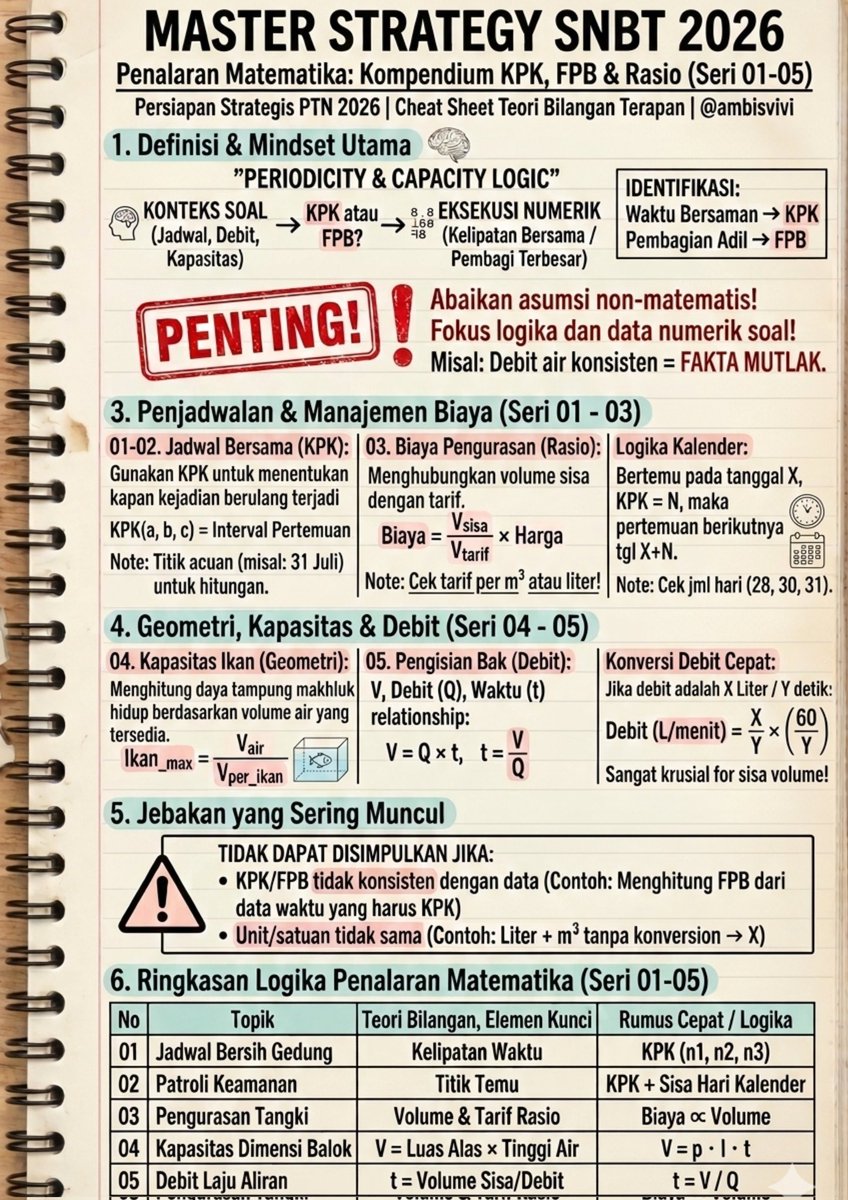 MASTER STRATEGY SNBT 2026
Penalaran Matematika: Kompendium KPK, FPB & Rasio (Seri 01-05)
Persiapan Strategis PTN 2026 | Cheat Sheet Teori Bilangan Terapan | @ambisvivi
1. Definisi & Mindset Utama
"PERIODICITY & CAPACITY LOGIC"
KONTEKS SOAL
(Jadwal, Debit,
Kapasitas)
→ KPK atau
FPB? →
EKSEKUSI NUMERIK
(Kelipatan Bersama /
Pembagi Terbesar)
IDENTIFIKASI:
Waktu Bersaman → KPK
Pembagian Adil → FPB
PENTING!
Abaikan asumsi non-matematis!
Fokus logika dan data numerik soal!
Misal: Debit air konsisten = FAKTA MUTLAK.
3. Penjadwalan & Manajemen Biaya (Seri 01 - 03)
01-02. Jadwal Bersama (KPK):
Gunakan KPK untuk menentukan
kapan kejadian berulang terjadi
KPK(a, b, c) = Interval Pertemuan
Note: Titik acuan (misal: 31 Juli)
untuk hitungan.
03. Biaya Pengurasan (Rasio):
Menghubungkan volume sisa
dengan tarif.
Biaya = Vsisa / Vtarif × Harga
Note: Cek tarif per m³ atau liter!
Logika Kalender:
Bertemu pada tanggal X,
KPK = N, maka
pertemuan berikutnya
tgl X+N.
Note: Cek jml hari (28, 30, 31).
4. Geometri, Kapasitas & Debit (Seri 04 - 05)
04. Kapasitas Ikan (Geometri):
Menghitung daya tampung makhluk
hidup berdasarkan volume air yang
tersedia.
Ikan_max = Vair / Vper_ikan
05. Pengisian Bak (Debit):
V, Debit (Q), Waktu (t)
relationship:
V = Q × t, t = V / Q
Konversi Debit Cepat:
Jika debit adalah X Liter / Y detik:
Debit (L/menit) = X/Y × (60/Y)
Sangat krusial for sisa volume!
5. Jebakan yang Sering Muncul
TIDAK DAPAT DISIMPULKAN JIKA:
• KPK/FPB tidak konsisten dengan data (Contoh: Menghitung FPB dari
data waktu yang harus KPK)
• Unit/satuan tidak sama (Contoh: Liter + m³ tanpa konversion → X)
6. Ringkasan Logika Penalaran Matematika (Seri 01-05)
No Topik Teori Bilangan, Elemen Kunci Rumus Cepat / Logika
01 Jadwal Bersih Gedung Kelipatan Waktu KPK (n1, n2, n3)
02 Patroli Keamanan Titik Temu KPK + Sisa Hari Kalender
03 Pengurasan Tangki Volume & Tarif Rasio Biaya ∝ Volume
04 Kapasitas Dimensi Balok V = Luas Alas × Tinggi Air V = p · l · t
05 Debit Laju Aliran t = Volume Sisa/Debit t = V / Q